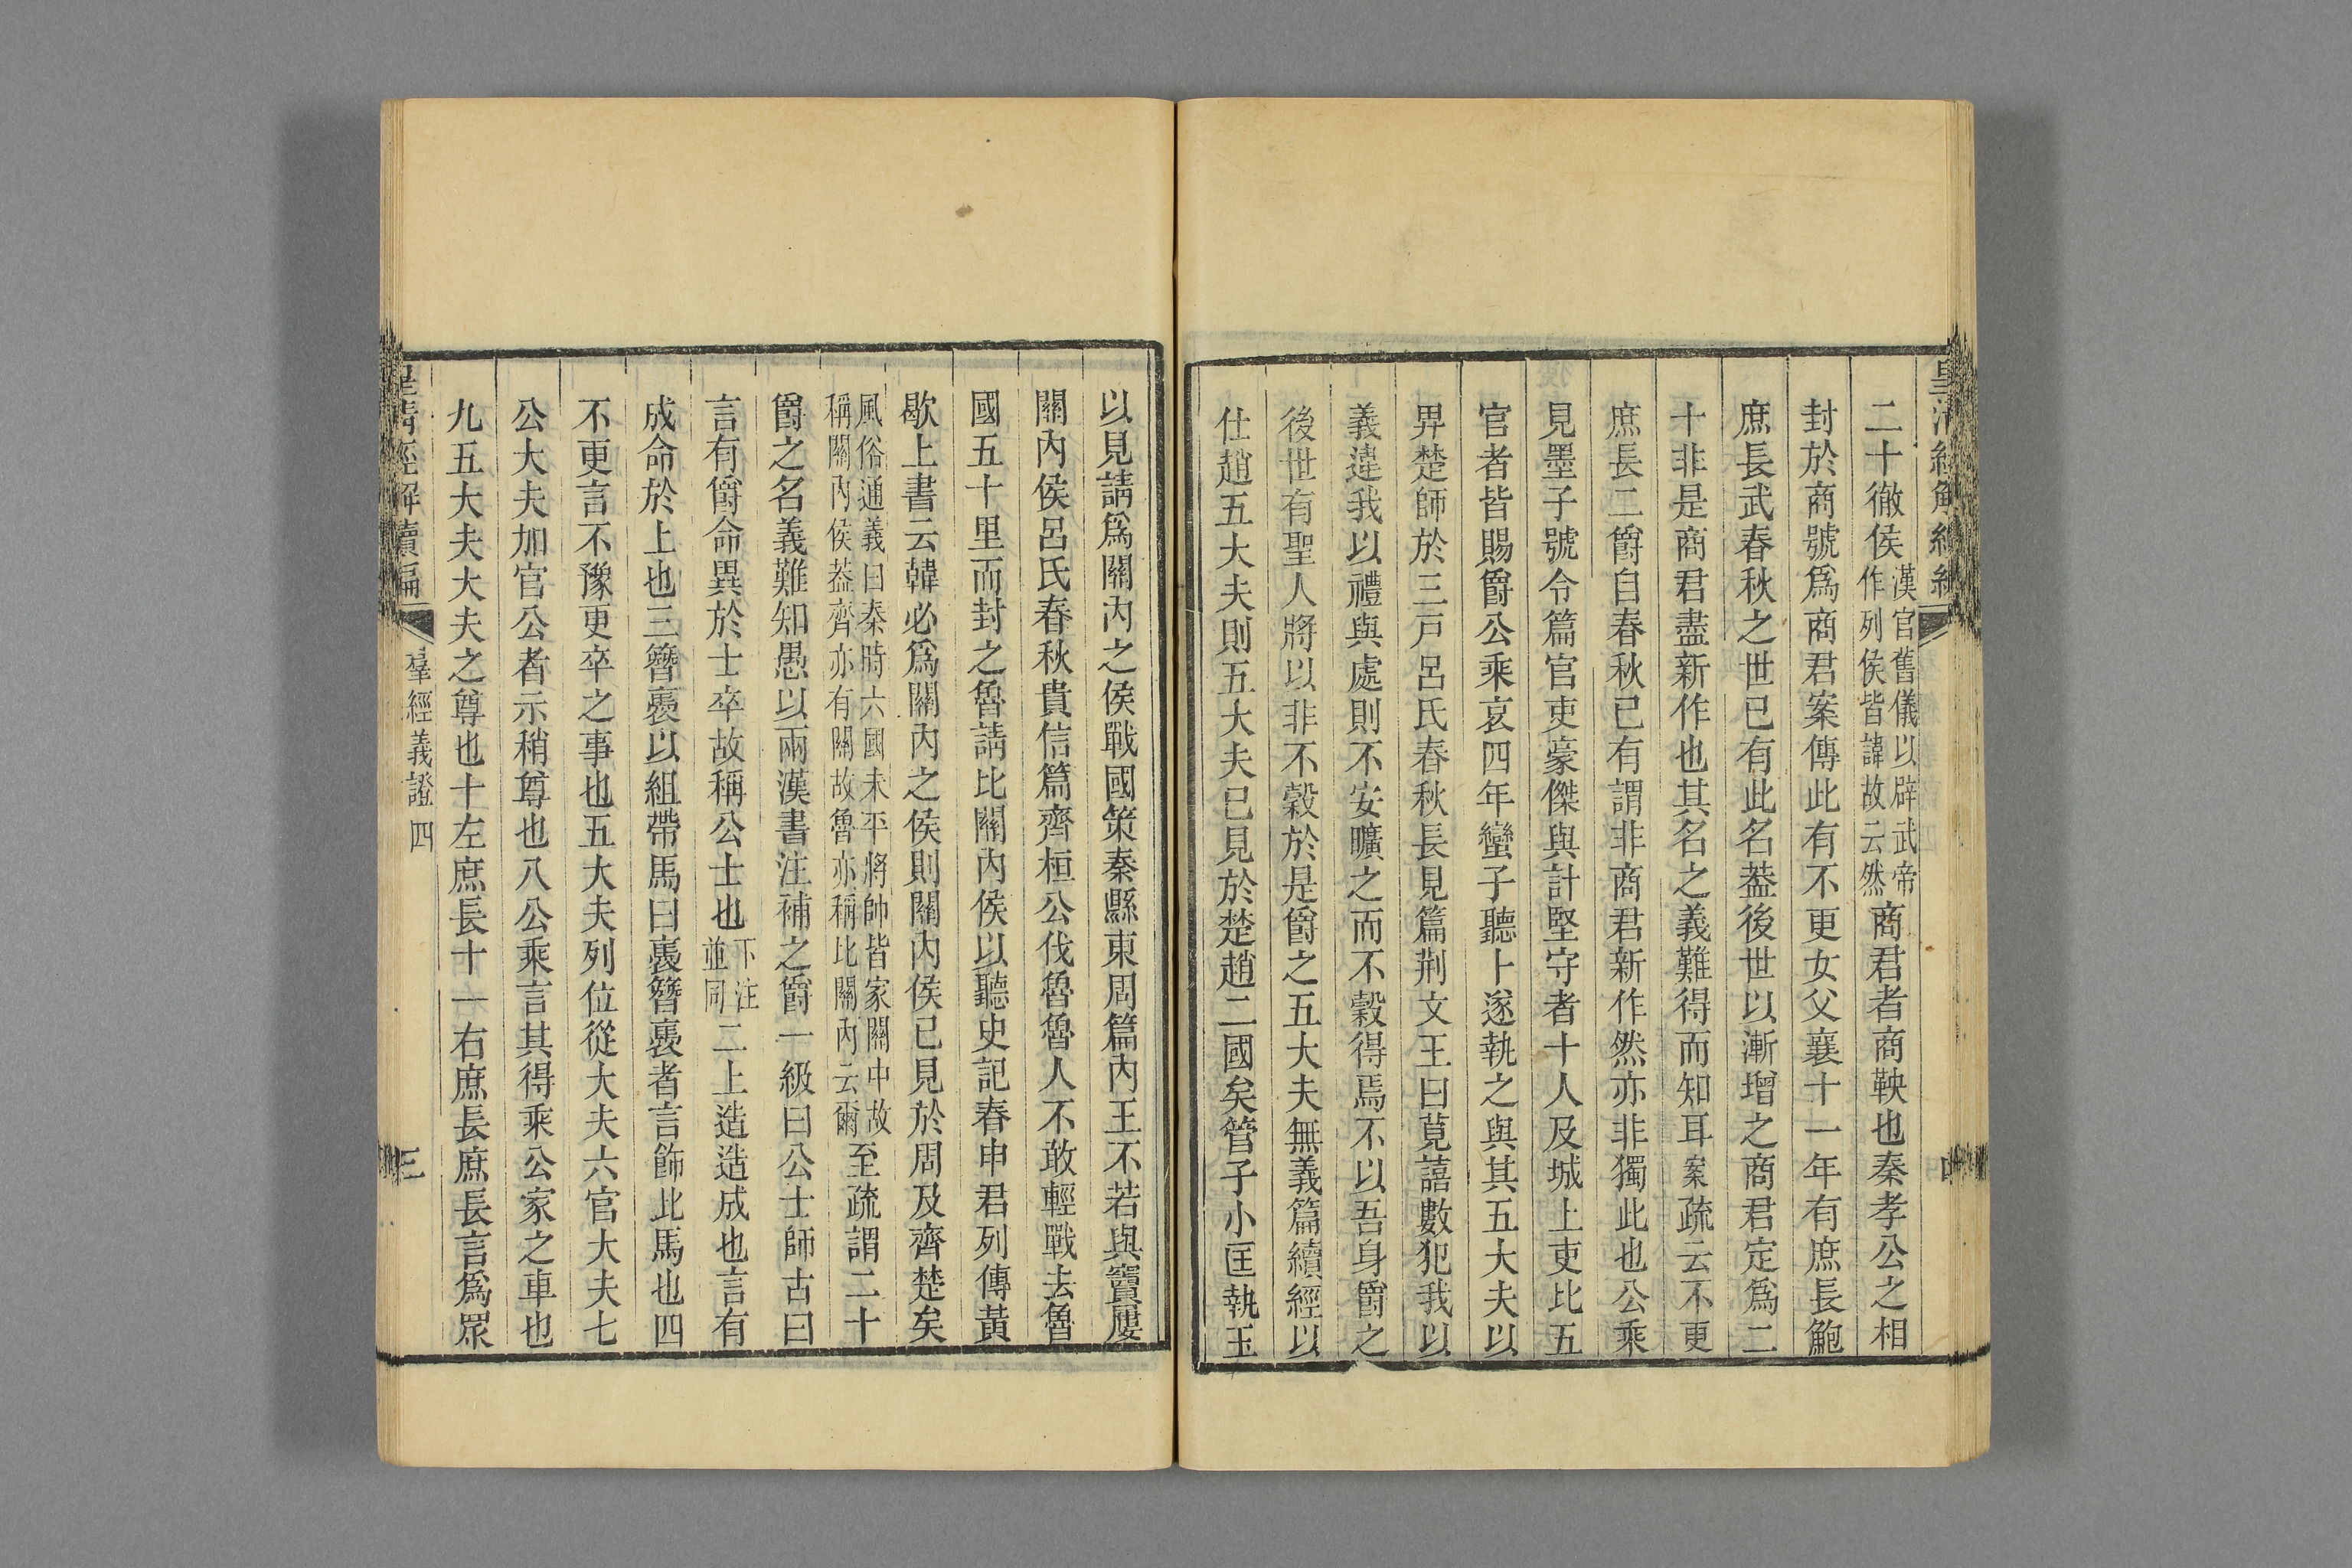 皇清經解續編 四
二十徹侯漢官舊儀以辟武帝
作列侯皆諱故云然商君者商鞅也秦孝公之相
封於商號爲商君案傳此有不更女父襄十一年有庶長鮑
庶長武春秋之世已有此名葢後世以漸增之商君定爲二
十非是商君盡新作也其名之義難得而知耳案疏云不更
庶長二爵自春秋已有謂非商君新作然亦非獨此也公乘
見墨子號令篇官吏豪傑與計堅守者十人及城上吏比五
官者皆賜爵公乘哀四年蠻子聽卜遂執之與其五大夫以
畀楚師於三戸呂氏春秋長見篇荆文王曰莧譆數犯我以
義違我以禮與處則不安曠之而不穀得焉不以吾身爵之
後世有聖人將以非不穀於是爵之五大夫無義篇續經以
仕趙五大夫則五大夫已見於楚趙二國矣管子小匡執玉
以見請爲關內之侯戰國策秦縣東周篇內王不若與竇屢
關內侯呂氏春秋貴信篇齊桓公伐魯魯人不敢輕戰去魯
國五十里而封之魯請比關內侯以聽史記春申君列傳黃
歇上書云韓必爲關內之侯則關內侯已見於周及齊楚矣
風俗通義曰秦時六國未平將帥皆家關中故
稱關內侯葢齊亦有關故魯亦稱比關內云爾至疏謂二十
爵之名義難知愚以兩漢書注補之爵一級曰公士師古曰
言有爵命異於士卒故稱公士也下注
並同二上造造成也言有
成命於上也三簪褭以組帶馬曰褭簪褭者言飾此馬也四
不更言不豫更卒之事也五大夫列位從大夫六官大夫七
公大夫加官公者示稍尊也八公乘言其得乘公家之車也
九五大夫大夫之尊也十左庶長十一右庶長庶長言爲眾
皇清經解續編 羣經義證四 三